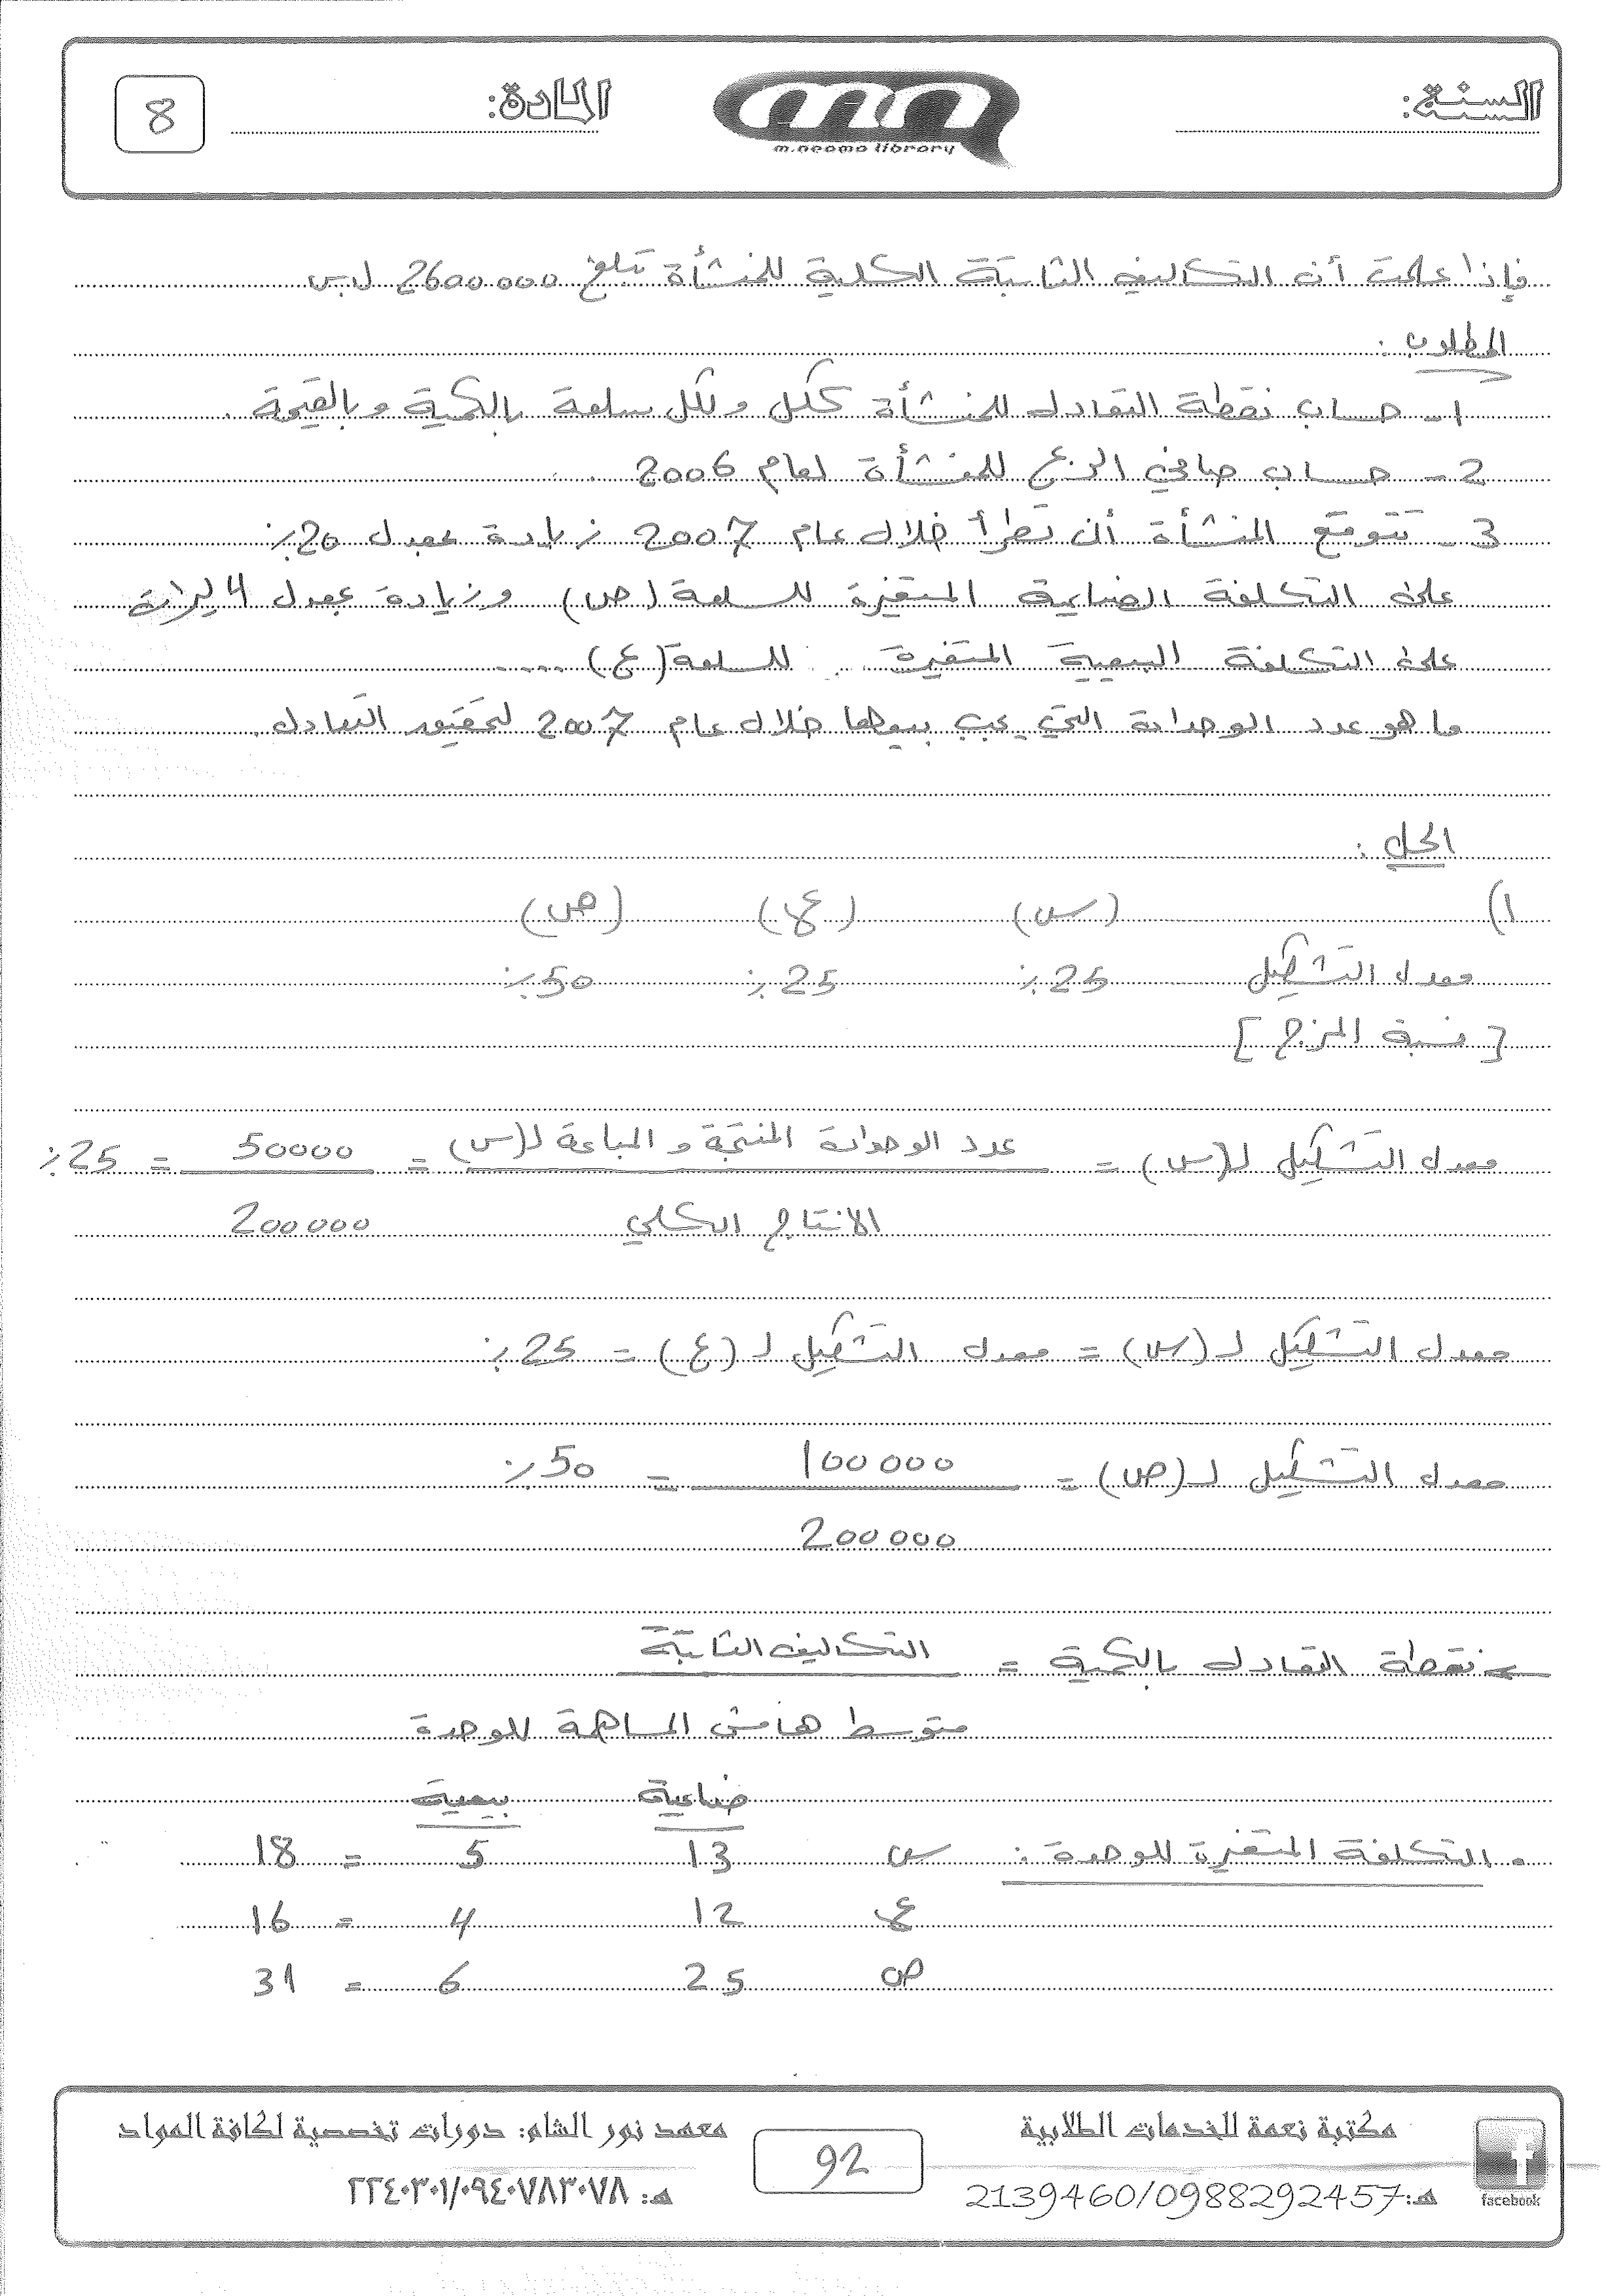 السنة:
m.neama library
المادة:
8
فإذا علمت أن التكاليف الثابتة الكلية للمنشأة تبلغ 2600000 ل.س
المطلوب :
1- حساب نقطة التعادل للمنشأة ككل ولكل سلعة بالكمية وبالقيمة .
2- حساب صافي الربح للمنشأة لعام 2006 .
3- تتوقع المنشأة أن تطرأ خلال عام 2007 زيادة بمعدل 20٪
على التكلفة الصناعية المتغيرة للسلعة (ص) وزيادة بمعدل 4 ليرات
على التكلفة البيعية المتغيرة للسلعة (ع) .....
ما هو عدد الوحدات التي يجب بيعها خلال عام 2007 لتحقيق التعادل .
الحل :
1) (س) (ع) (ص)
معدل التشكيل 25٪ 25٪ 50٪
[نسبة المزج]
معدل التشكيل لـ(س) = عدد الوحدات المنتجة و المباعة لـ(س) = 50000 = 25٪
الانتاج الكلي 200000
معدل التشكيل لـ (س) = معدل التشكيل لـ (ع) = 25٪
معدل التشكيل لـ (ص) = 100000 = 50٪
200000
نقطة التعادل بالكمية = التكاليف الثابتة
متوسط هامش المساهمة للوحدة
صناعية بيعية
• التكلفة المتغيرة للوحدة : س 13 5 = 18
ع 12 4 = 16
ص 25 6 = 31
مكتبة نعمة للخدمات الطلابية
هـ: 2139460/0988292457
facebook
92
معهد نور الشام: دورات تخصصية لكافة المواد
هـ: ٢٢٤٠٣٠١/٠٩٤٠٧٨٣٠٧٨